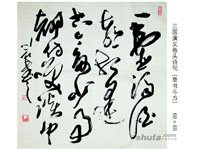 三国演义卷头诗句 [草书斗方]
一壶浊酒
喜相逢
古今多少事
都付笑谈中
shufa.com